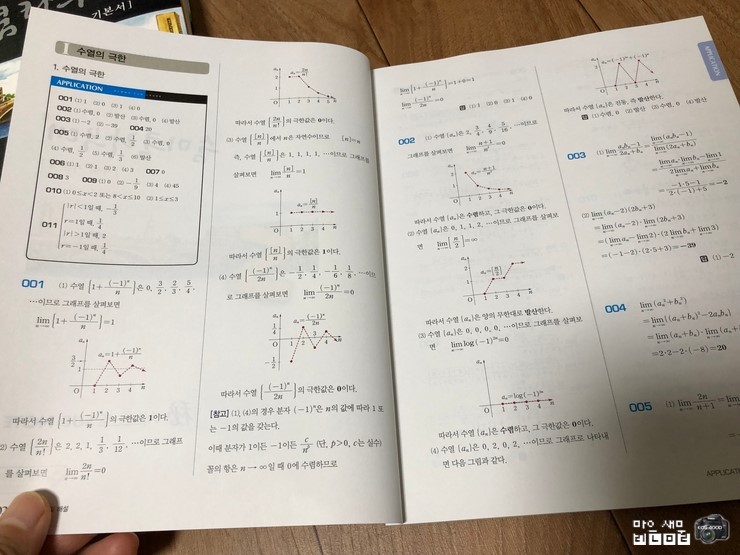 기본서
Ⅰ 수열의 극한
1. 수열의 극한
APPLICATION
001 (1) 1 (2) 0 (3) 1 (4) 0
002 (1) 수렴, 0 (2) 발산 (3) 수렴, 0 (4) 발산
003 (1) −2 (2) −39 004 20
006 (1) 1 (2) 1 (3) 2 (4) 3 007 0
008 3 009 (1) 0 (2) −1/9 (3) 4 (4) 45
010 (1) 0≤x<2 또는 8<x≤10 (2) 1≤x≤3
|r|<1일 때, −1/3
r=1일 때, 1/4
011 |r|>1일 때, 2
r=−1일 때, 1/4
001 (1) 수열 {1+(−1)ⁿ/n}은 0, 3/2, 2/3, 5/4,
…이므로 그래프를 살펴보면
lim[1+(−1)ⁿ/n]=1
aₙ=1+(−1)ⁿ/n
따라서 수열 {1+(−1)ⁿ/n}의 극한값은 1이다.
(2) 수열 {2n/n!}은 2, 2, 1, 1/3, 1/12, …이므로 그래프
를 살펴보면 lim 2n/n!=0
aₙ=2n/n!
따라서 수열 {2n/n!}의 극한값은 0이다.
(3) 수열 {[n]/n}에서 n은 자연수이므로 [n]=n
즉, 수열 {[n]/n}은 1, 1, 1, 1, …이므로 그래프를
살펴보면 lim [n]/n=1
aₙ=[n]/n
따라서 수열 {[n]/n}의 극한값은 1이다.
(4) 수열 {(−1)ⁿ/2n}은 −1/2, 1/4, −1/6, 1/8, …이므
로 그래프를 살펴보면 lim (−1)ⁿ/2n=0
aₙ=(−1)ⁿ/2n
따라서 수열 {(−1)ⁿ/2n}의 극한값은 0이다.
[참고] (1), (4)의 경우 분자 (−1)ⁿ은 n의 값에 따라 1 또
는 −1의 값을 갖는다.
이때 분자가 1이든 −1이든 c/nᵖ (단, p>0, c는 실수)
꼴의 항은 n→∞일 때 0에 수렴하므로
lim[1+(−1)ⁿ/n]=1+0=1
lim (−1)ⁿ/2n=0
답 (1) 1 (2) 0 (3) 1 (4) 0
002 (1) 수열 {aₙ}은 2, 3/4, 4/9, 5/16, …이므로
그래프를 살펴보면 lim (n+1)/n²=0
따라서 수열 {aₙ}은 수렴하고, 그 극한값은 0이다.
(2) 수열 {aₙ}은 0, 1, 1, 2, …이므로 그래프를 살펴보
면 lim[n/2]=∞
aₙ=[n/2]
따라서 수열 {aₙ}은 양의 무한대로 발산한다.
(3) 수열 {aₙ}은 0, 0, 0, 0, …이므로 그래프를 살펴보
면 lim log(−1)²ⁿ=0
aₙ=log(−1)²ⁿ
따라서 수열 {aₙ}은 수렴하고, 그 극한값은 0이다.
(4) 수열 {aₙ}은 0, 2, 0, 2, …이므로 그래프로 나타내
면 다음 그림과 같다.
따라서 수열 {aₙ}은 진동, 즉 발산한다.
답 (1) 수렴, 0 (2) 발산 (3) 수렴, 0 (4) 발산
003 (1) lim (aₙbₙ−1)/(2aₙ+bₙ)=lim(aₙbₙ−1)/lim(2aₙ+bₙ)
=(lim aₙ·lim bₙ−lim 1)/(2lim aₙ+lim bₙ)
=(−1·5−1)/(2·(−1)+5)=−2
(2) lim(aₙ−2)(2bₙ+3)
=lim(aₙ−2)·lim(2bₙ+3)
=(lim aₙ−lim 2)·(2lim bₙ+lim 3)
=(−1−2)·(2·5+3)=−39
답 (1) −2
004 lim(aₙ³+bₙ³)
=2·2−2·(−8)=20
005 (1) lim 2n/(n+1)=
APPLICATION
APPLICATI
해설
EOS 600D